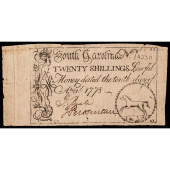 South Carolina N.º
TWENTY SHILLINGS Lawful
Money dated the tenth day of
April 1778